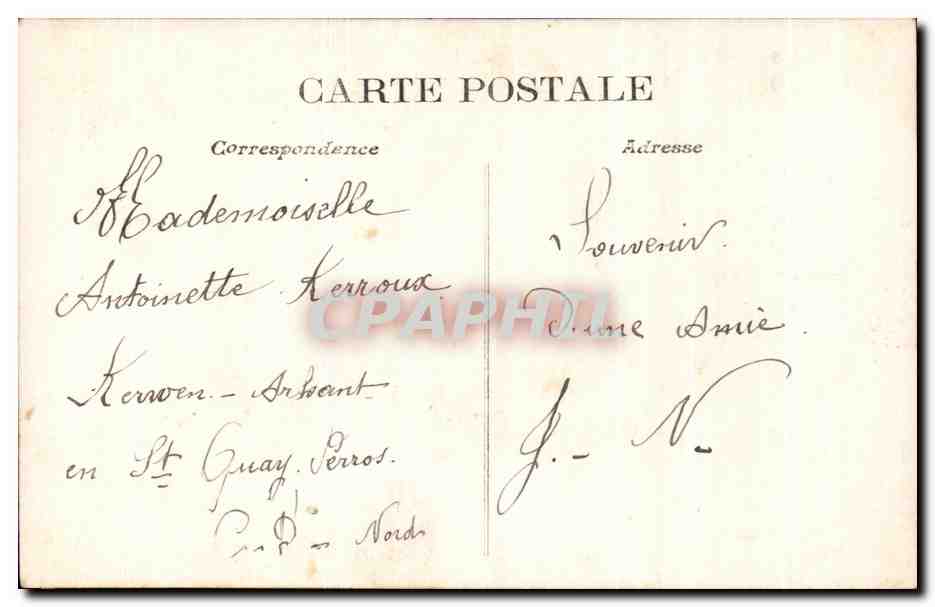 CARTE POSTALE
Correspondence
Mademoiselle
Antoinette Kerroux
en St Quay. Perros.
Nord
Adresse
Souvenir.
D'une Amie.
J. - N -
CPAPHIL